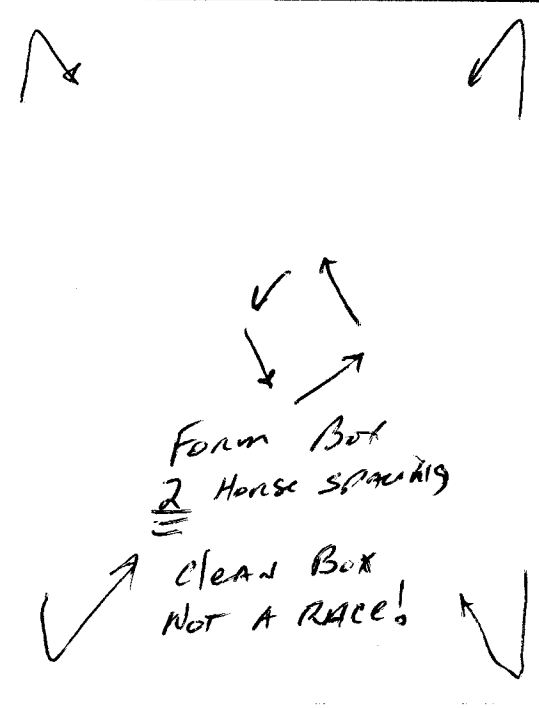 Form Box
2 Horse spacing
Clean Box
Not A Race!